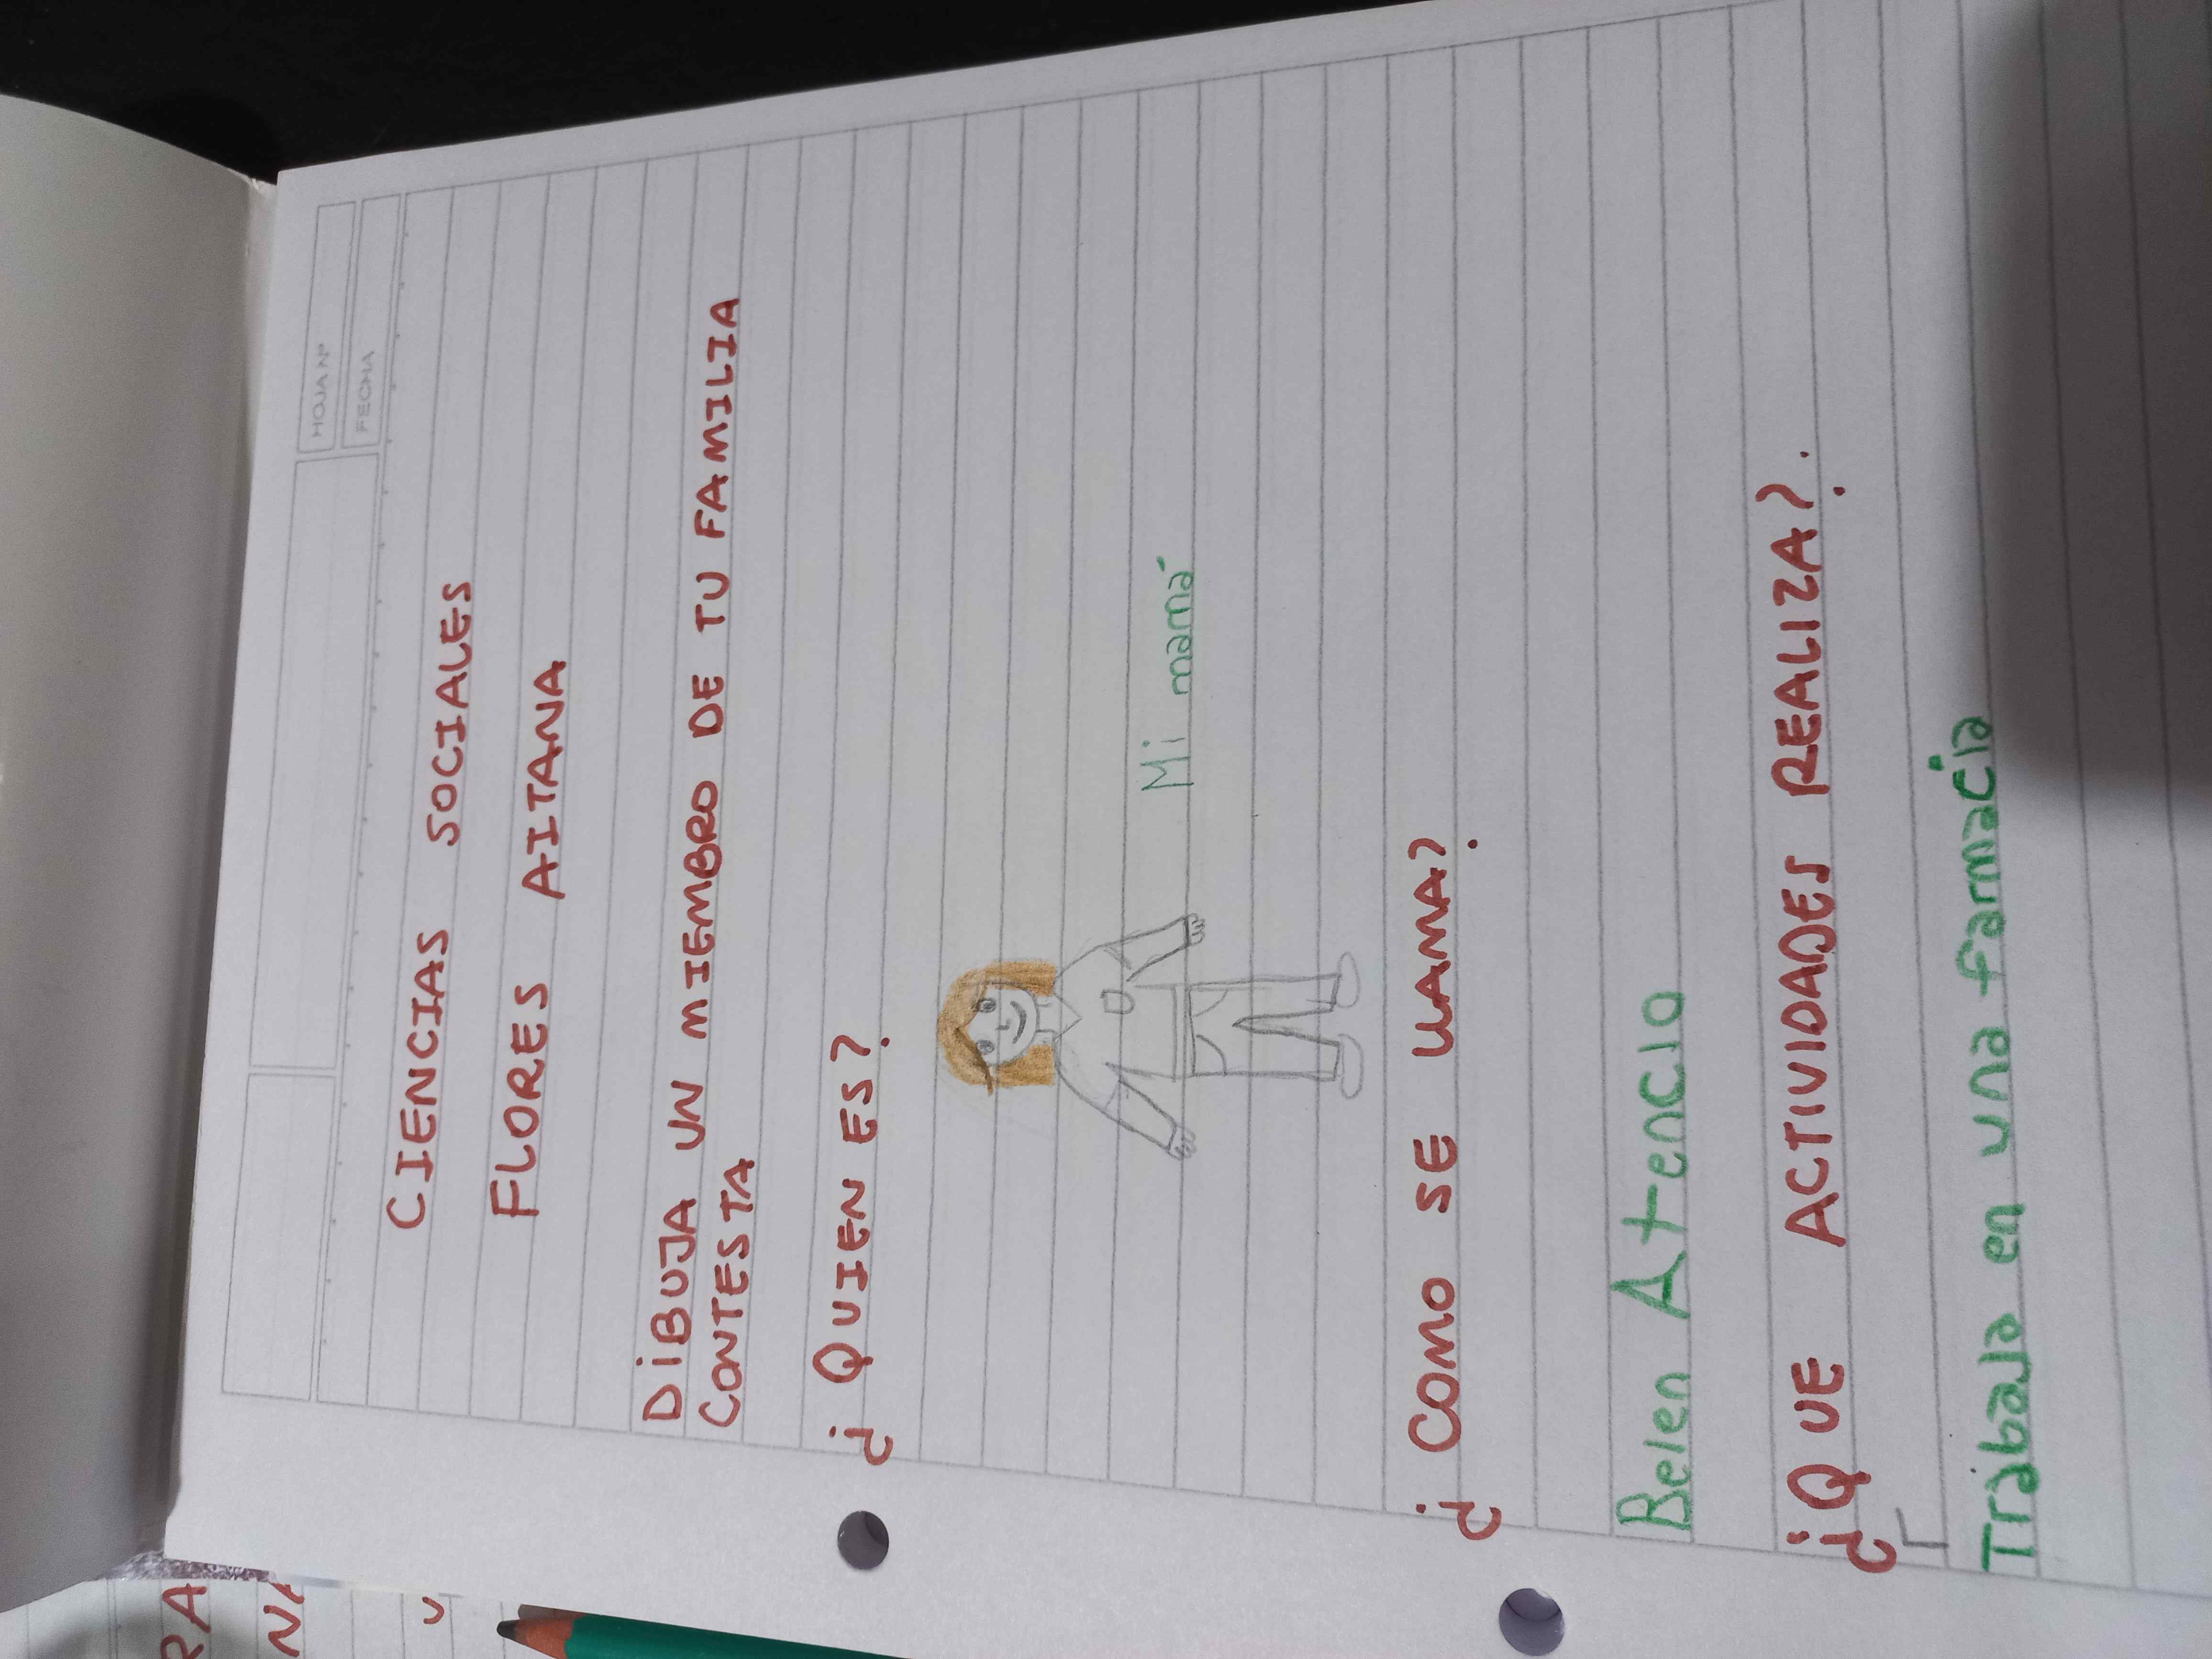 HOJA Nº
FECHA
CIENCIAS SOCIALES
FLORES AITANA
DIBUJA UN MIEMBRO DE TU FAMILIA
CONTESTA
¿QUIEN ES?
Mi mamá
¿COMO SE LLAMA?
Belen Atencio
¿QUE ACTIVIDADES REALIZA?.
Trabaja en una farmacia
RA